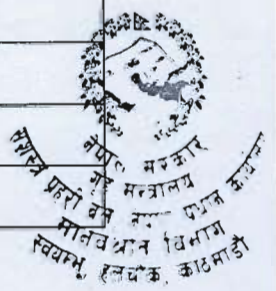 नेपाल सरकार
गृह मन्त्रालय
सशस्त्र प्रहरी बल नेपाल प्रधान कार्यालय
मानव श्रोत विभाग
स्वयम्भू हलचोक, काठमाडौं